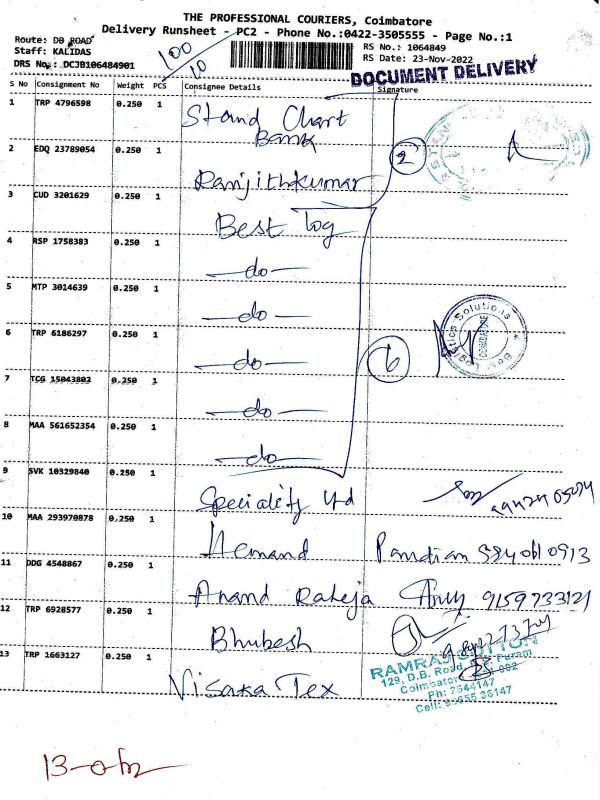 THE PROFESSIONAL COURIERS, Coimbatore
Delivery Runsheet - PC2 - Phone No.:0422-3505555 - Page No.:1
Route: DB ROAD
Staff: KALIDAS
DRS No.: DCJB106484901
RS No.: 1064849
RS Date: 23-Nov-2022
100
10
DOCUMENT DELIVERY
S No Consignment No Weight PCS Consignee Details Signature
1 TRP 4796598 0.250 1 Stand Chart Bank
2 EDQ 23789054 0.250 1 Ranjithkumar
2
3 CUD 3201629 0.250 1 Best log
4 RSP 1758383 0.250 1 -do-
5 MTP 3014639 0.250 1 -do-
6 TRP 6186297 0.250 1 -do-
6
7 TCG 15043802 0.250 1 -do-
8 MAA 561652354 0.250 1 -do-
Best Logistics Solutions
COIMBATORE
9 SVK 10329840 0.250 1 Speciality Ltd
10 MAA 293970878 0.250 1 Hemand Pandian
11 DDG 4548867 0.250 1 Anand Raheja 9159733121
12 TRP 6928577 0.250 1 Bhubesh
13 TRP 1663127 0.250 1 Visaka Tex
RAMRAJ COTTON
129, D.B. Road, Puram
Coimbatore 002
Ph: 2544147
Cell: 36147
13-